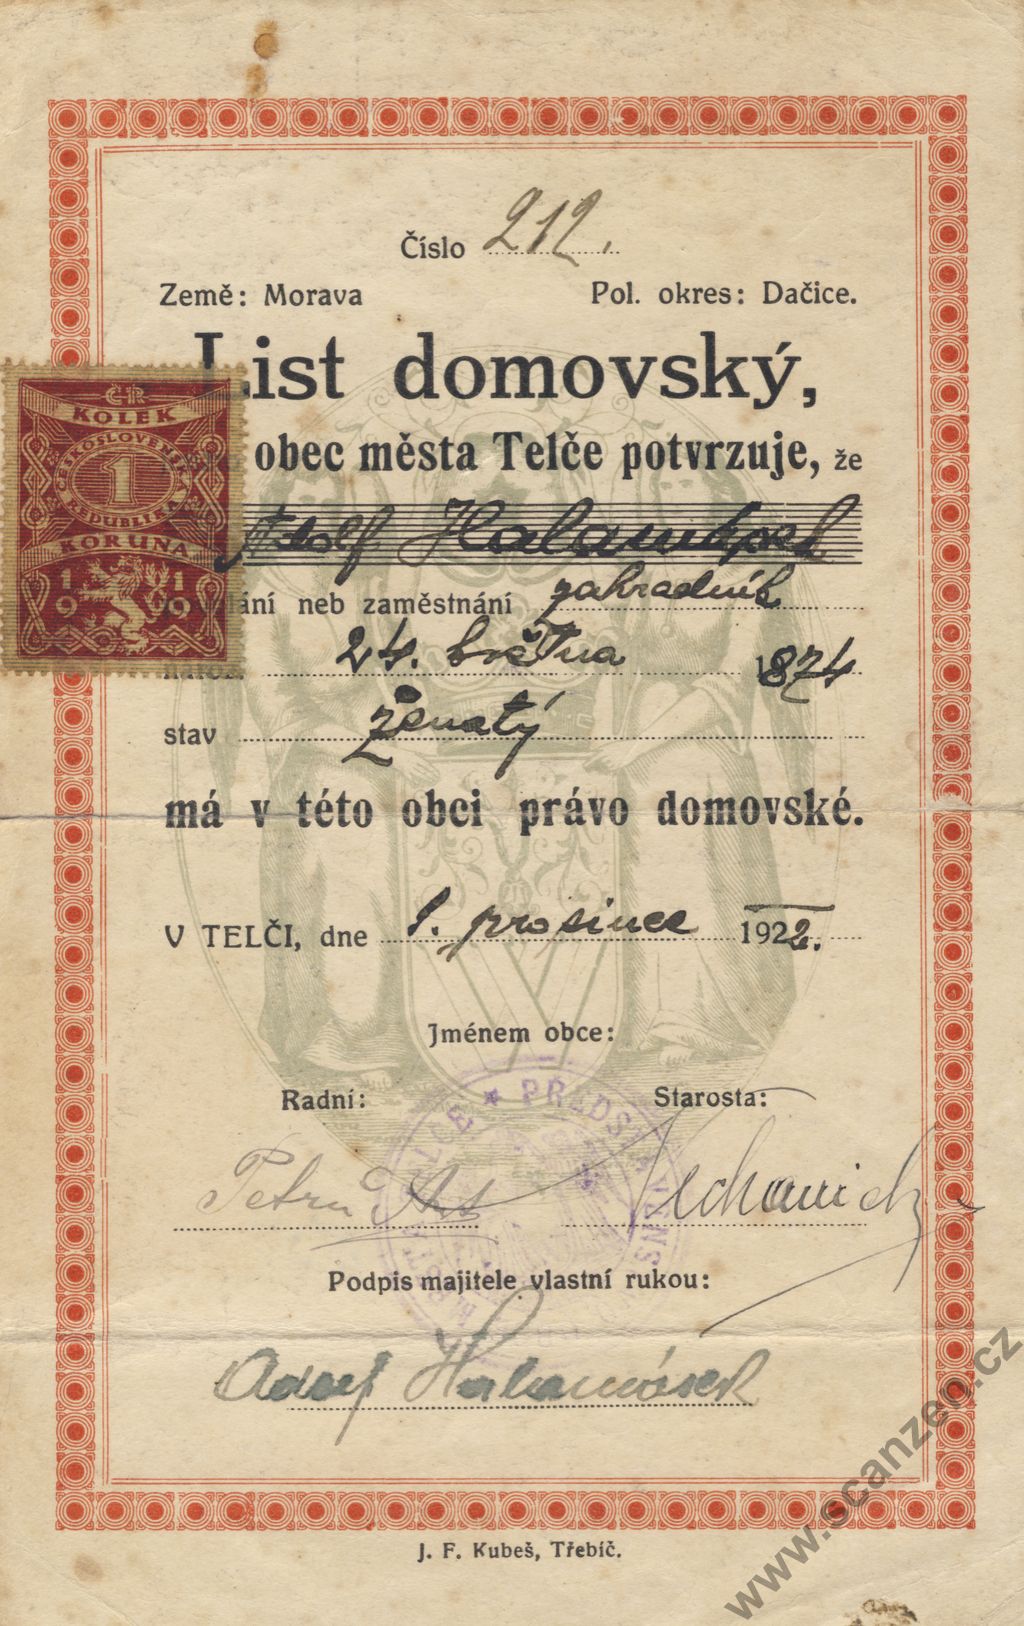 Číslo 212.
Země: Morava Pol. okres: Dačice.
List domovský,
obec města Telče potvrzuje, že
Adolf Halamásek
neb zaměstnání zahradník
24. května 1874
stav ženatý
má v této obci právo domovské.
V TELČI, dne 1. prosince 1922.
Jménem obce:
Radní: Starosta:
Podpis majitele vlastní rukou:
Adolf Halamásek
J. F. Kubeš, Třebíč.
ČR
KOLEK
ČESKOSLOVENSKÁ
1
REPUBLIKA
KORUNA
1919
www.scanzen.cz